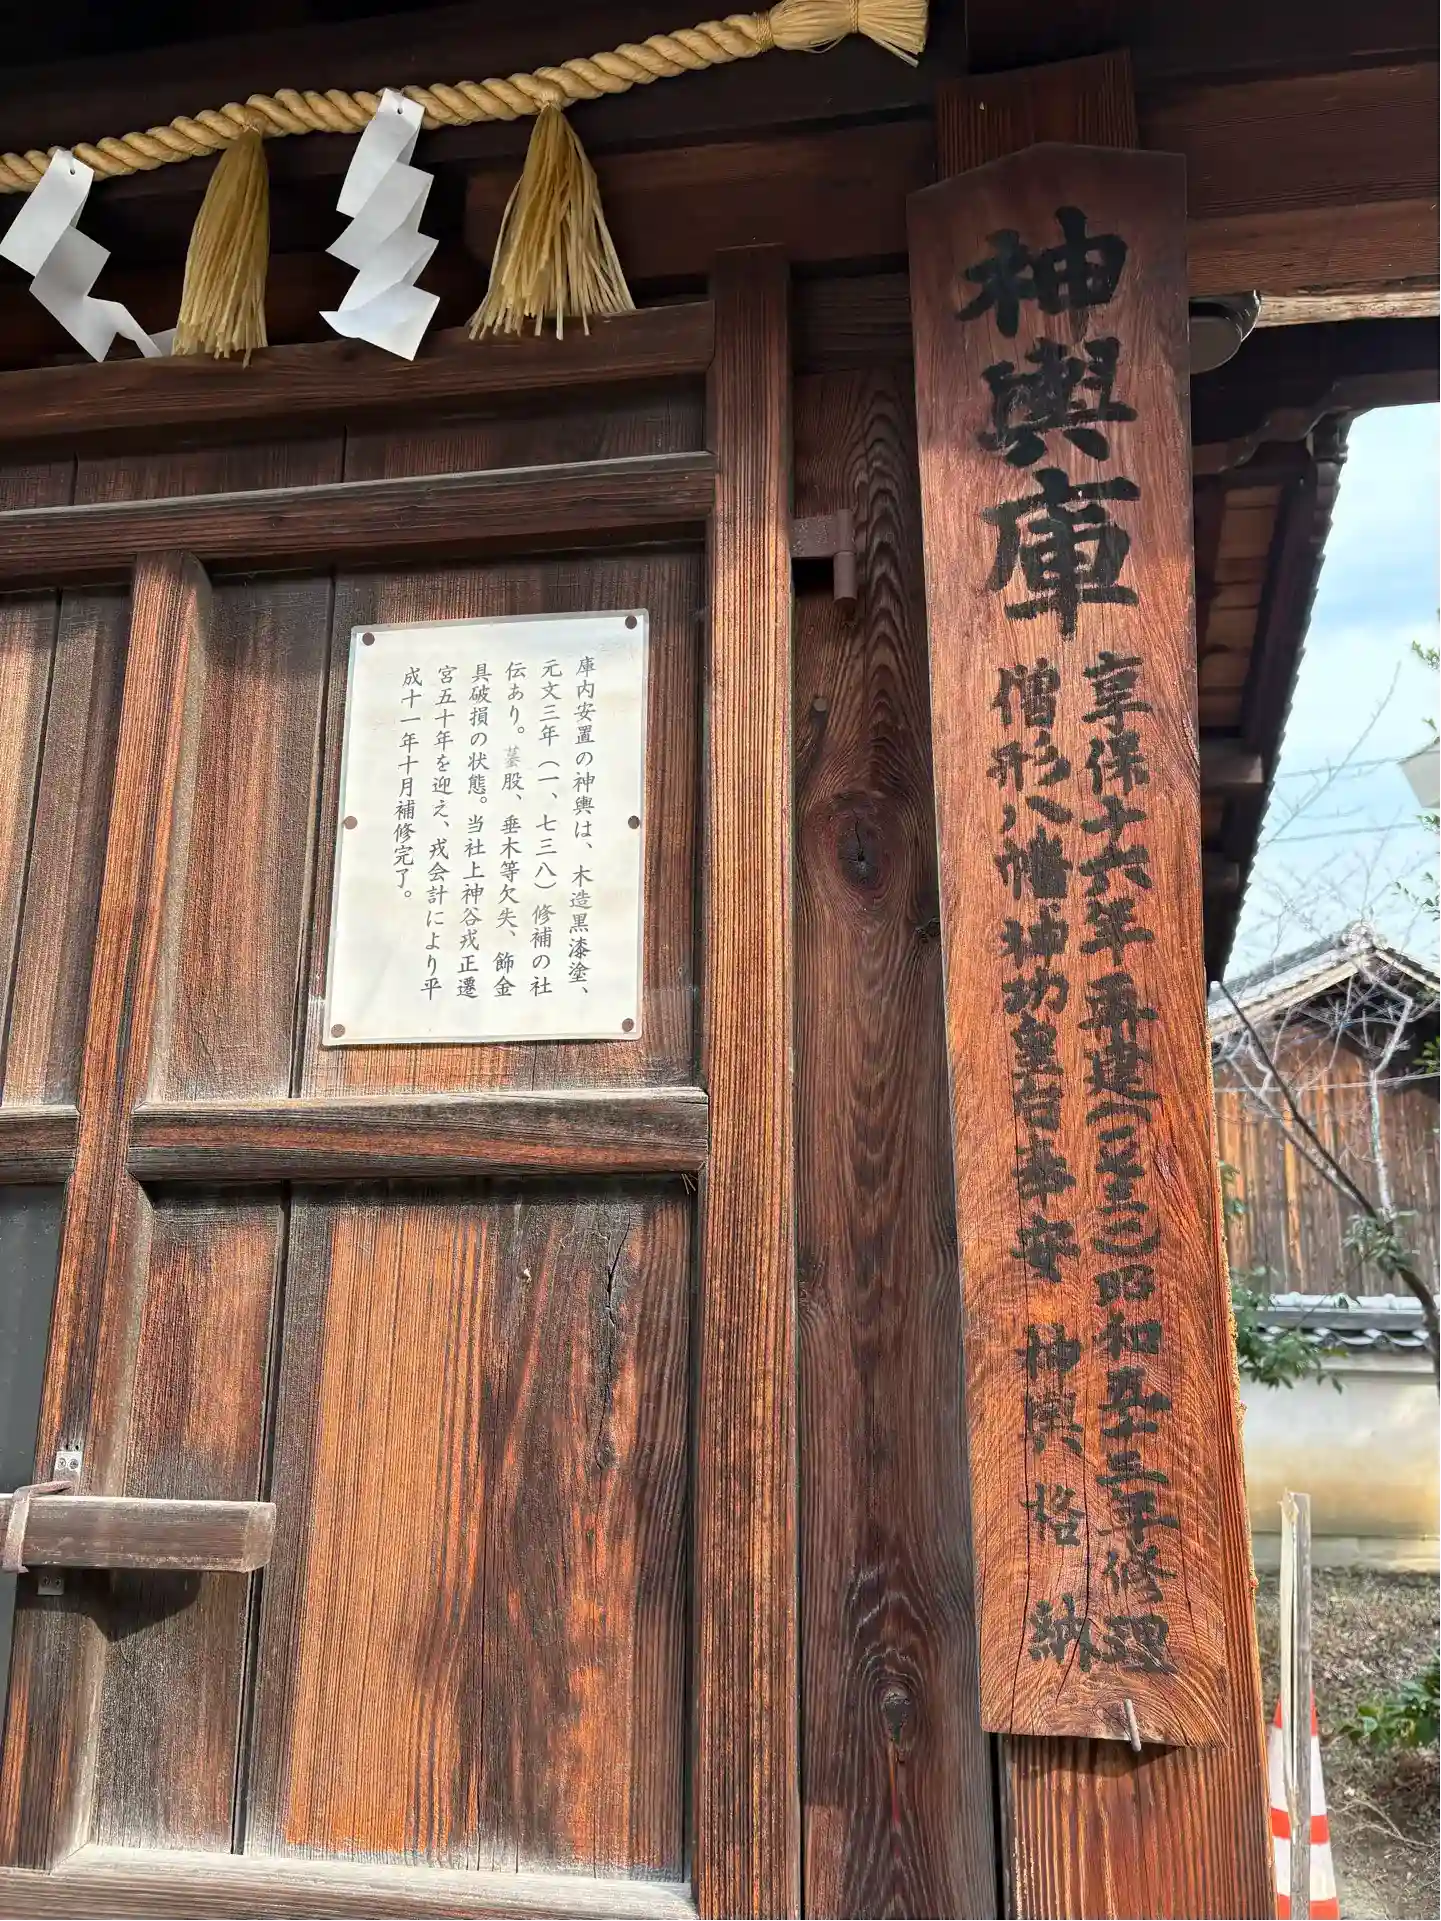 神輿庫
享保十六年再建(一七三一)昭和五十三年修理
僧形八幡神功皇后奉安 神輿格納
庫内安置の神輿は、木造黒漆塗、
元文三年(一、七三八)修補の社
伝あり。蟇股、垂木等欠失、飾金
具破損の状態。当社上神谷戎正遷
宮五十年を迎え、戎会計により平
成十一年十月補修完了。